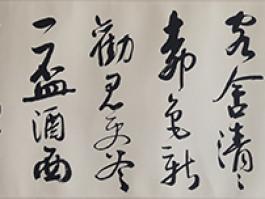 客舍清〻
柳色新
勸君更尽
一盃酒西